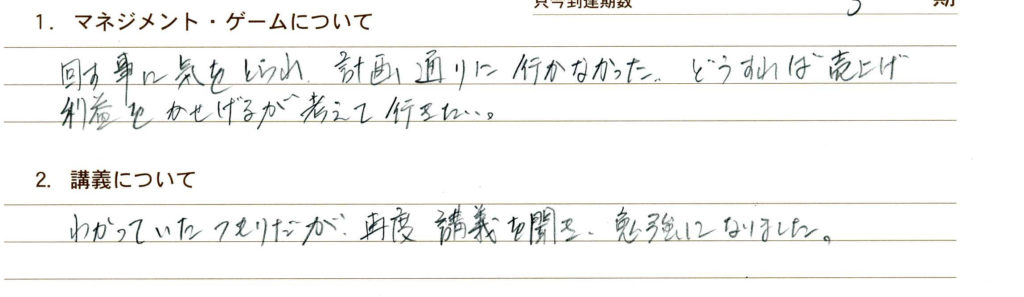 只今到達期数 3 期
1. マネジメント・ゲームについて
回す事に気をとられ、計画通りに行かなかった。どうすれば売上げ
利益をかせげるが考えて行きたい。
2. 講義について
わかっていたつもりだが、再度講義を聞き、勉強になりました。